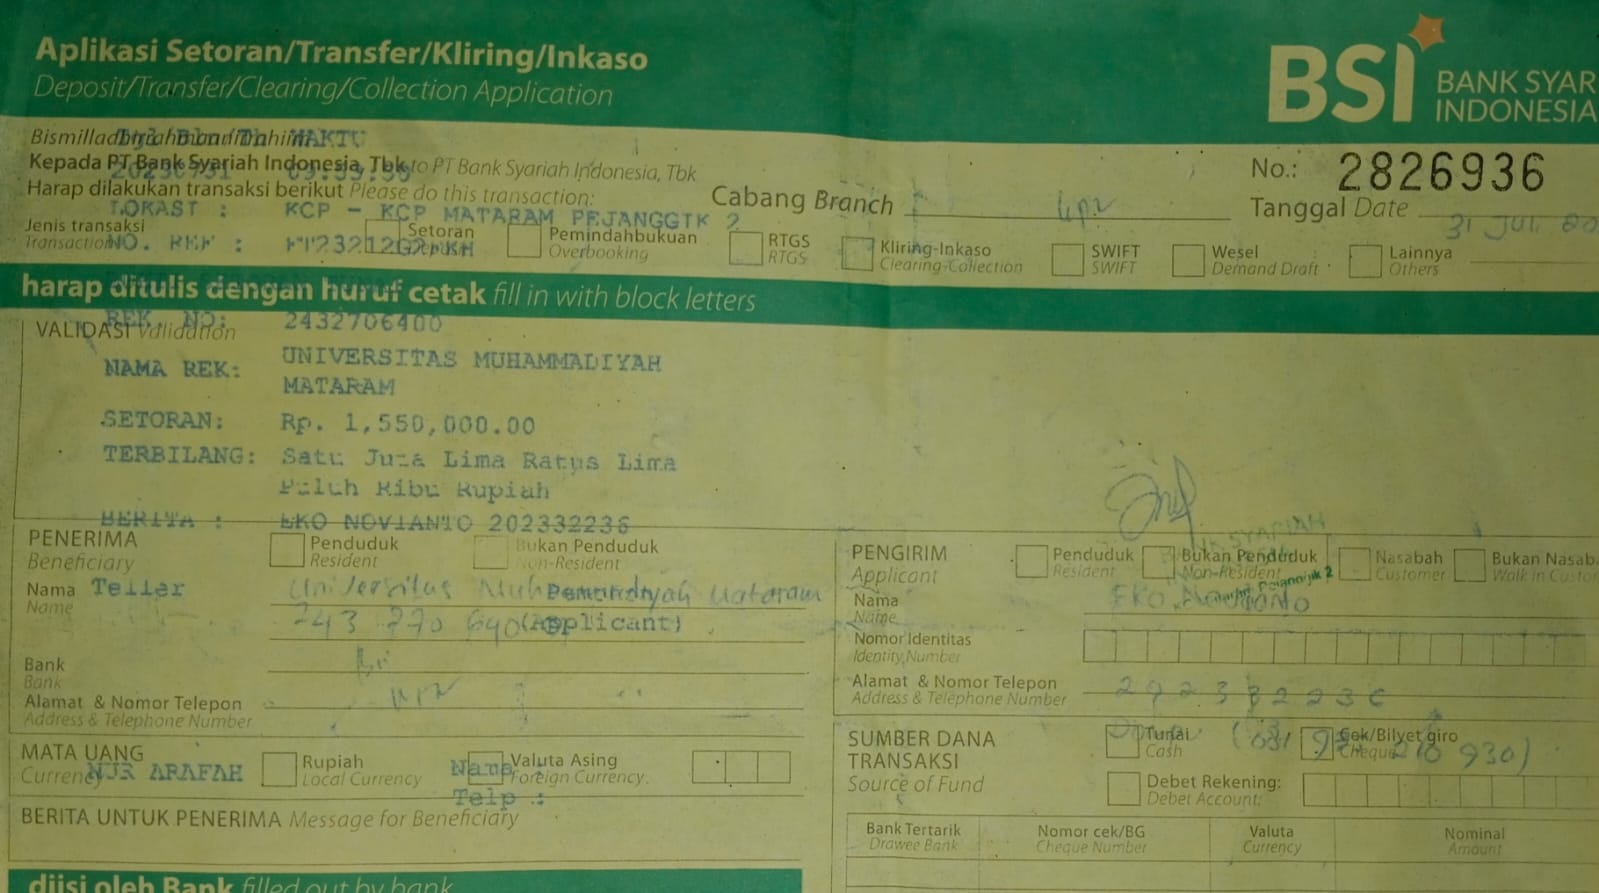 Aplikasi Setoran/Transfer/Kliring/Inkaso
Deposit/Transfer/Clearing/Collection Application
BSI BANK SYAR
INDONESIA
WAKTU
Kepada PT Bank Syariah Indonesia, Tbk to PT Bank Syariah Indonesia, Tbk
Harap dilakukan transaksi berikut Please do this transaction:
Cabang Branch
No.: 2826936
Tanggal Date 31 JUL 20
LOKASI : KCP - KCP MATARAM PEJANGGIK 2
Jenis transaksi
Transaction
NO. REF :
Setoran
Pemindahbukuan
Overbooking
RTGS
RTGS
Kliring-Inkaso
Clearing-Collection
SWIFT
SWIFT
Wesel
Demand Draft
Lainnya
Others
harap ditulis dengan huruf cetak fill in with block letters
VALIDASI Validation
REK NO: 2432706400
NAMA REK: UNIVERSITAS MUHAMMADIYAH
MATARAM
SETORAN: Rp. 1,550,000.00
TERBILANG: Satu Juta Lima Ratus Lima
Puluh Ribu Rupiah
BERITA : EKO NOVIANTO 202332236
PENERIMA
Beneficiary
Penduduk
Resident
Bukan Penduduk
Non-Resident
Nama
Name
Teller
Universitas Muhammadiyah Mataram
(Applicant)
Bank
Bank
Alamat & Nomor Telepon
Address & Telephone Number
PENGIRIM
Applicant
Penduduk
Resident
Bukan Penduduk
Non-Resident
Nasabah
Customer
Bukan Nasab
Walk in Custo
Nama
Name
Eko Novianto
Nomor Identitas
Identity Number
Alamat & Nomor Telepon
Address & Telephone Number
202332236
MATA UANG
Currency
NUR ARAFAH
Rupiah
Local Currency
Nama
Telp :
Valuta Asing
Foreign Currency.
BERITA UNTUK PENERIMA Message for Beneficiary
SUMBER DANA
TRANSAKSI
Source of Fund
Tunai
Cash
Cek/Bilyet giro
Cheque
Debet Rekening:
Debet Account:
Bank Tertarik
Drawee Bank
Nomor cek/BG
Cheque Number
Valuta
Currency
Nominal
Amount
diisi oleh Bank filled out by bank